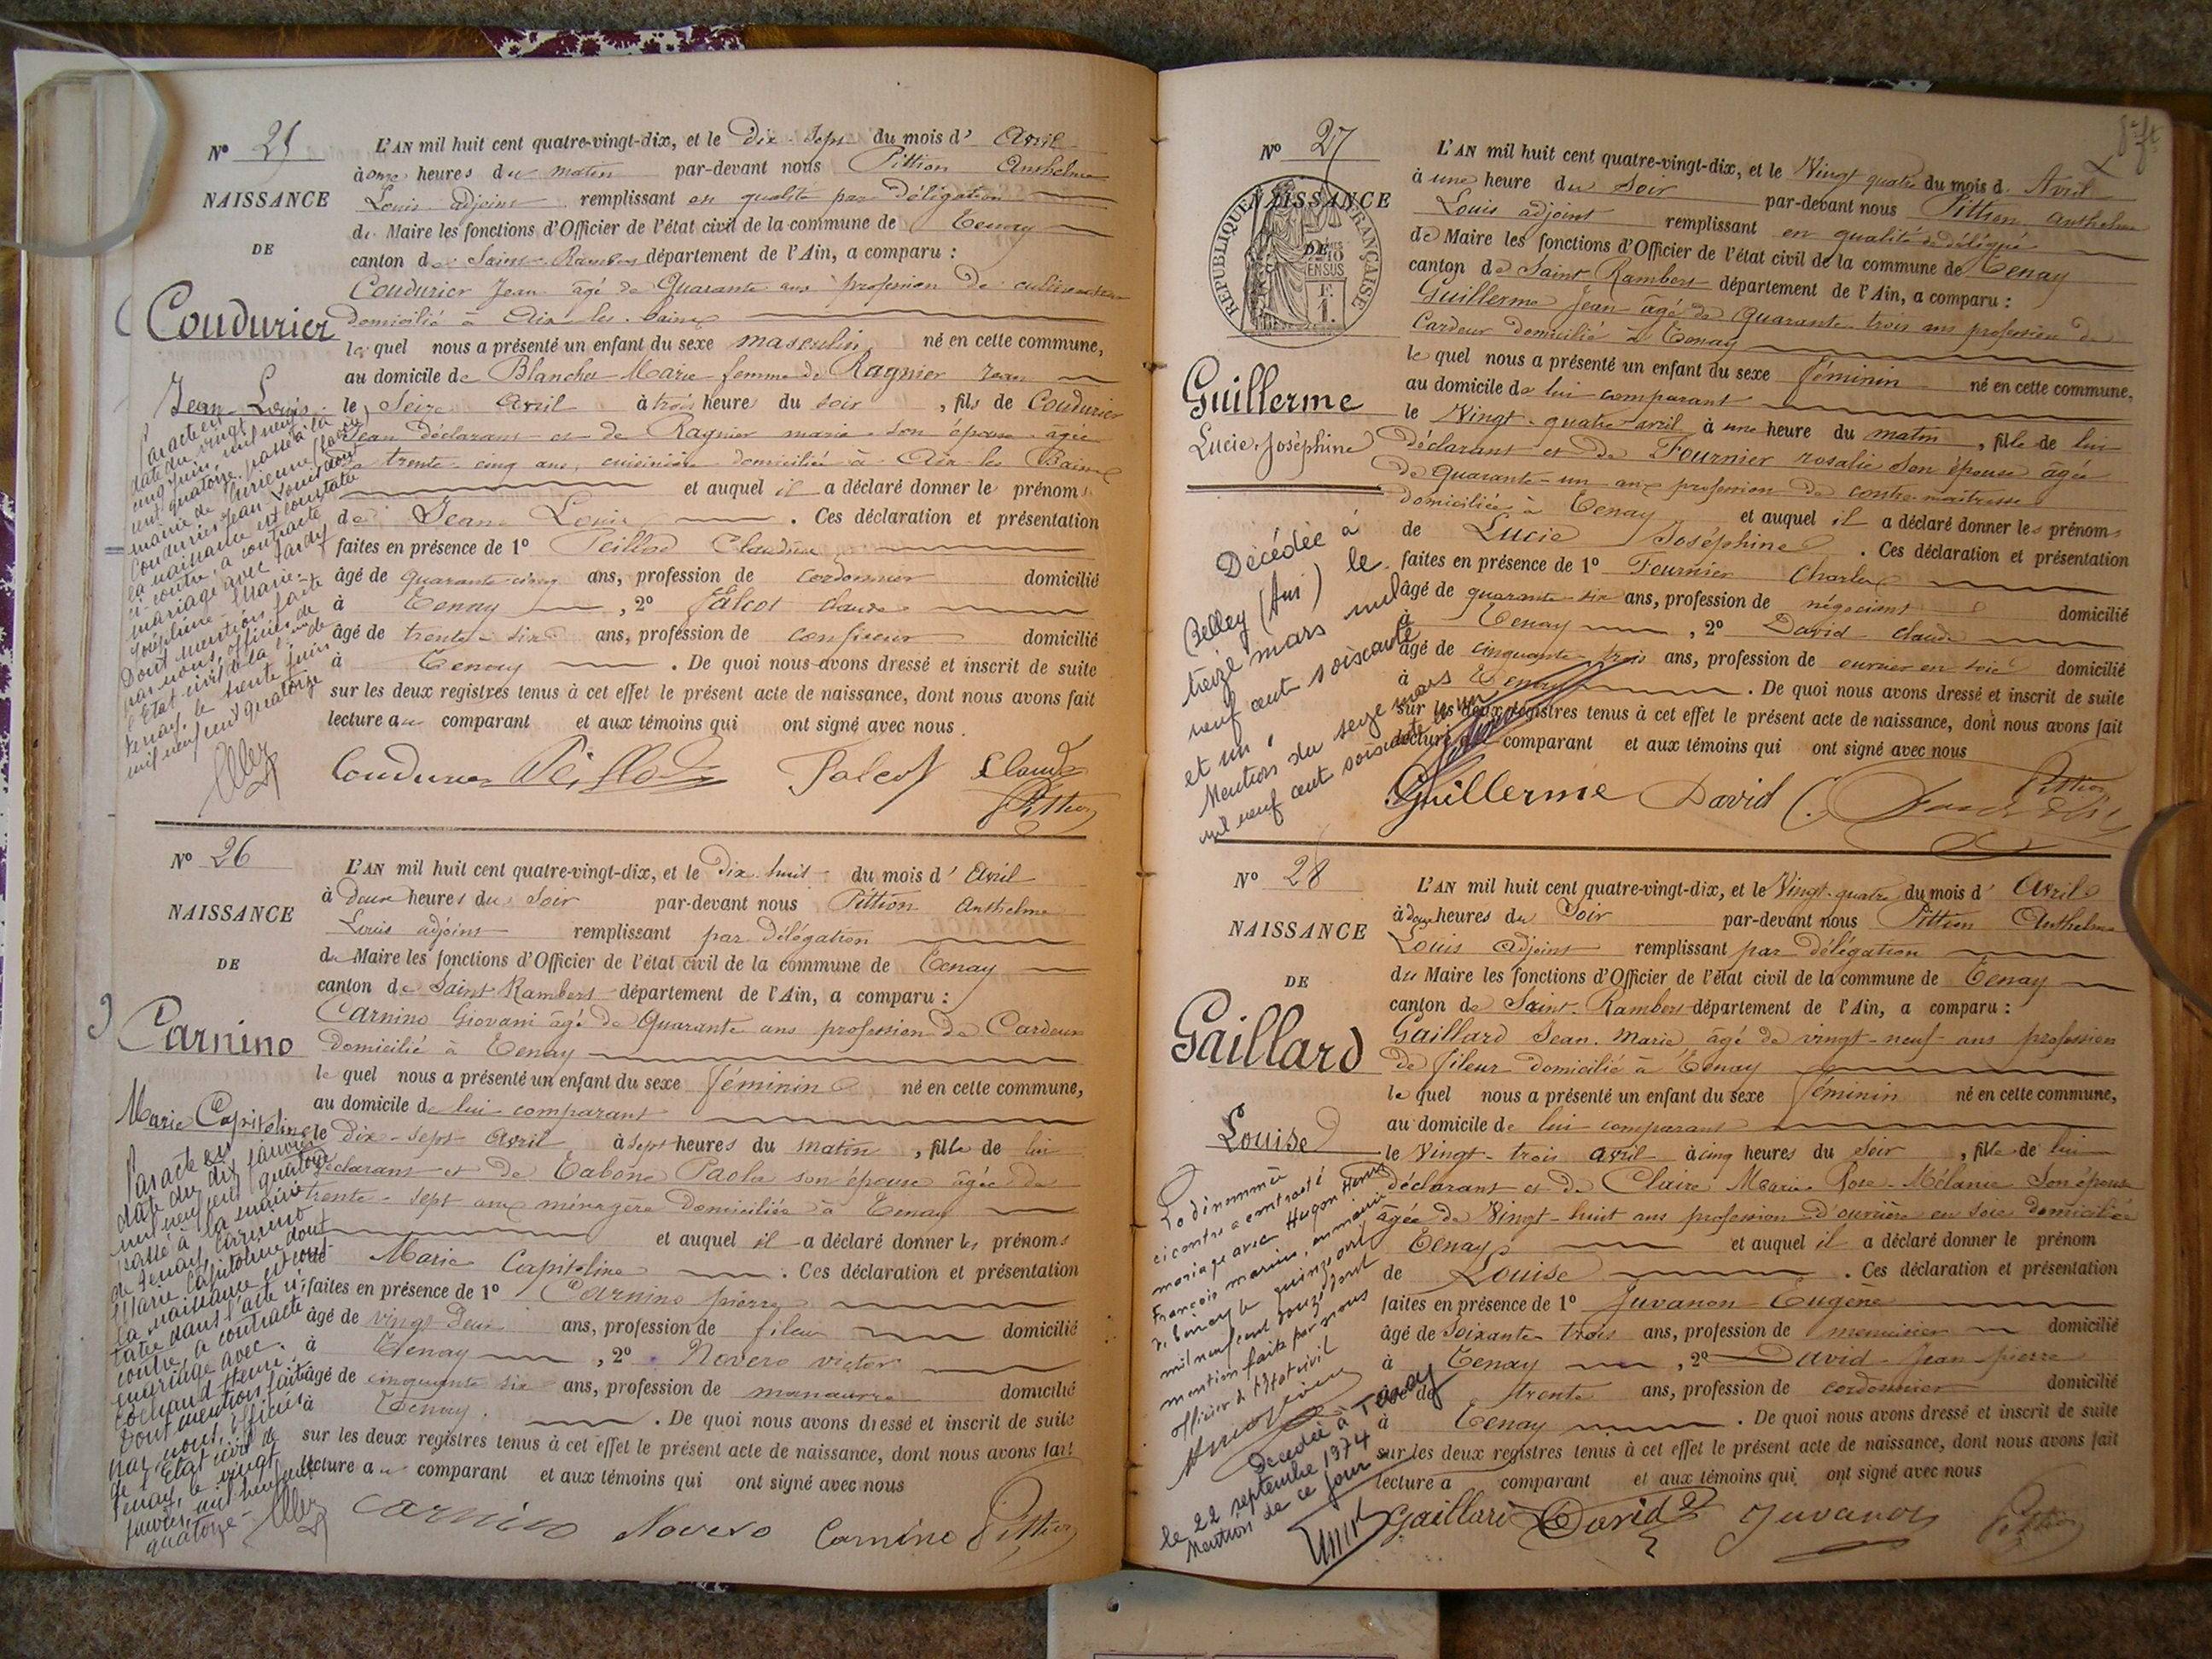 Nº 25
NAISSANCE
DE
Coudurier
Jean Louis
L'AN mil huit cent quatre-vingt-dix, et le Dix-Sept du mois d' Avril
à onze heures du matin par-devant nous Pittion Anthelme
Louis adjoint remplissant en qualité par Délégation
de Maire les fonctions d'Officier de l'état civil de la commune de Tenay
canton de Saint-Rambert département de l'Ain, a comparu :
Coudurier Jean âgé de Quarante ans profession de cultivateur
domicilié à Aix les Bains
lequel nous a présenté un enfant du sexe masculin né en cette commune,
au domicile de Blanchet Marie femme de Ragnier Jean
le Seize Avril à trois heures du soir, fils de Coudurier
Jean déclarant et de Ragnier marie son épouse âgée
de trente-cinq ans, cuisinière domiciliée à Aix-les Bains
et auquel il a déclaré donner le prénoms
de Jean Louis. Ces déclaration et présentation
faites en présence de 1º Peillod Claudius
âgé de quarante cinq ans, profession de cordonnier domicilié
à Tenay, 2º Falcot claude
âgé de trente-six ans, profession de confiseur domicilié
à Tenay. De quoi nous avons dressé et inscrit de suite
sur les deux registres tenus à cet effet le présent acte de naissance, dont nous avons fait
lecture au comparant et aux témoins qui ont signé avec nous.
Par acte en
date du vingt
cinq Juin, mil neuf
cent quatorze, passé à la
mairie de Curienne (Savoie)
Coudurier Jean Louis dont
la naissance est constatée
ci-contre, a contracté
mariage avec Tardy
Joséphine Marie.
Dont mention faite
par nous, officier de
l'Etat civil de la Cne de
Tenay, le trente Juin
mil neuf cent quatorze
Coudurier Peillod Falcot Claude
Pittion
Nº 26
NAISSANCE
DE
Carnino
Marie Capitoline
L'AN mil huit cent quatre-vingt-dix, et le Dix-huit du mois d' Avril
à Deux heures du Soir par-devant nous Pittion Anthelme
Louis adjoint remplissant par Délégation
du Maire les fonctions d'Officier de l'état civil de la commune de Tenay
canton de Saint Rambert département de l'Ain, a comparu :
Carnino Giovani âgé de Quarante ans profession de Cardeur
Domicilié à Tenay
lequel nous a présenté un enfant du sexe féminin né en cette commune,
au domicile de lui comparant
le dix-sept Avril à sept heures du matin, fille de lui
déclarant et de Tabone Paola son épouse âgée de
trente-sept ans ménagère Domiciliée à Tenay
et auquel il a déclaré donner les prénoms
Marie Capitoline. Ces déclaration et présentation
faites en présence de 1º Carnino pierre
âgé de vingt Deux ans, profession de fileur domicilié
à Tenay, 2º Novero victor
âgé de cinquante six ans, profession de manœuvre domicilié
à Tenay. De quoi nous avons dressé et inscrit de suite
sur les deux registres tenus à cet effet le présent acte de naissance, dont nous avons fait
lecture au comparant et aux témoins qui ont signé avec nous
Par acte en
date du dix janvier
mil neuf cent quatorze
passé à la mairie
de Tenay, Carnino
Marie Capitoline dont
la naissance est cons-
tatée dans l'acte ci-
contre, a contracté
mariage avec
Cochand Henri.
Dont mention faite
par nous, officier
de l'Etat civil de
Tenay, le vingt
janvier, mil neuf cent
quatorze
Carnino Novero Carnino Pittion
Nº 27
NAISSANCE
DE
REPUBLIQUE FRANÇAISE
Guillerme
Lucie Joséphine
L'AN mil huit cent quatre-vingt-dix, et le Vingt quatre du mois d' Avril
à une heure du Soir par-devant nous Pittion Anthelme
Louis adjoint remplissant en qualité de délégué
de Maire les fonctions d'Officier de l'état civil de la commune de Tenay
canton de Saint Rambert département de l'Ain, a comparu :
Guillerme Jean âgé de Quarante-trois ans profession de
Cardeur domicilié à Tenay
lequel nous a présenté un enfant du sexe féminin né en cette commune,
au domicile de lui comparant
le Vingt-quatre avril à une heure du matin, fille de lui
déclarant et de Fournier rosalie Son épouse âgée
de Quarante-un ans profession de contre-maitresse
domiciliée à Tenay et auquel il a déclaré donner les prénoms
de Lucie Joséphine. Ces déclaration et présentation
faites en présence de 1º Fournier Charles
âgé de quarante-six ans, profession de négociant domicilié
à Tenay, 2º David claude
âgé de cinquante-trois ans, profession de ouvrier en soie domicilié
à Tenay. De quoi nous avons dressé et inscrit de suite
sur les deux registres tenus à cet effet le présent acte de naissance, dont nous avons fait
lecture au comparant et aux témoins qui ont signé avec nous
Décédée à
Belley (Ain) le
treize mars mil
neuf cent soixante
et un.
Mention du seize mars
mil neuf cent soixante et un
Guillerme David Pittion
Nº 28
NAISSANCE
DE
Gaillard
Louise
L'AN mil huit cent quatre-vingt-dix, et le Vingt-quatre du mois d' Avril
à deux heures du Soir par-devant nous Pittion Anthelme
Louis Adjoint remplissant par délégation
du Maire les fonctions d'Officier de l'état civil de la commune de Tenay
canton de Saint-Rambert département de l'Ain, a comparu :
Gaillard Jean Marie âgé de vingt-neuf ans profession
de fileur domicilié à Tenay
lequel nous a présenté un enfant du sexe féminin né en cette commune,
au domicile de lui comparant
le Vingt-trois avril à cinq heures du Soir, fille de lui
déclarant et de Claire Marie Rose-Mélanie Son épouse
âgée de Vingt-huit ans profession D'ouvrière en soie domiciliée
Tenay et auquel il a déclaré donner le prénom
de Louise. Ces déclaration et présentation
faites en présence de 1º Juvanon Eugène
âgé de Soixante-trois ans, profession de menuisier domicilié
à Tenay, 2º David Jean pierre
âgé de trente ans, profession de cordonnier domicilié
à Tenay. De quoi nous avons dressé et inscrit de suite
sur les deux registres tenus à cet effet le présent acte de naissance, dont nous avons fait
lecture a comparant et aux témoins qui ont signé avec nous
La dénommée
ci contre a contracté
mariage avec Hugon
François marius, en mairie
de Tenay le quinze avril
mil neuf cent douze dont
mention faite par nous
officier de l'état civil
Décédée à Tenay
le 22 septembre 1974
Mention de ce jour
Gaillard David Juvanon Pittion